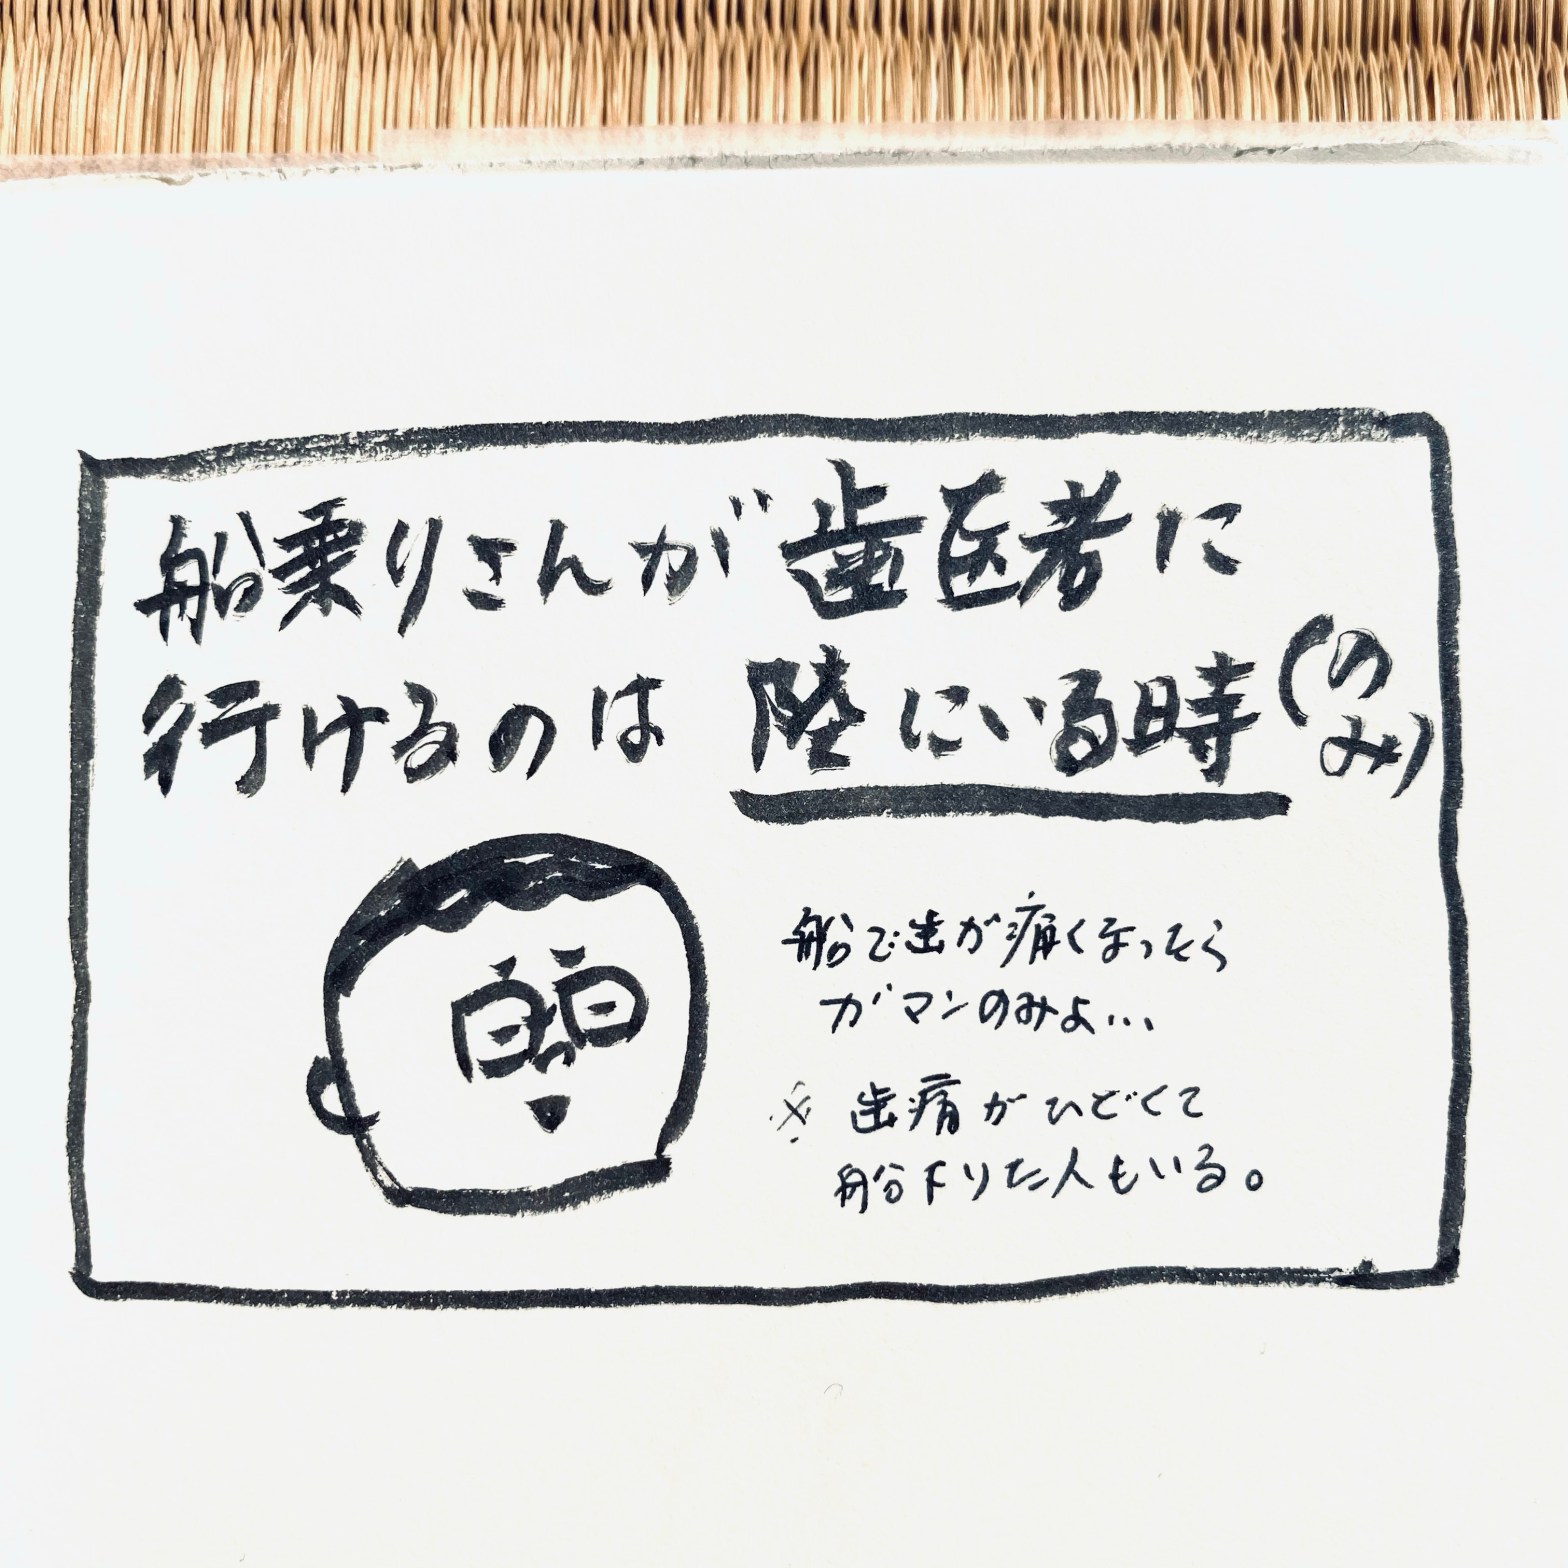 船乗りさんが歯医者に
行けるのは陸にいる時(のみ)
船で歯が痛くなったら
ガマンのみよ...
※ 歯痛がひどくて
船下りた人もいる。